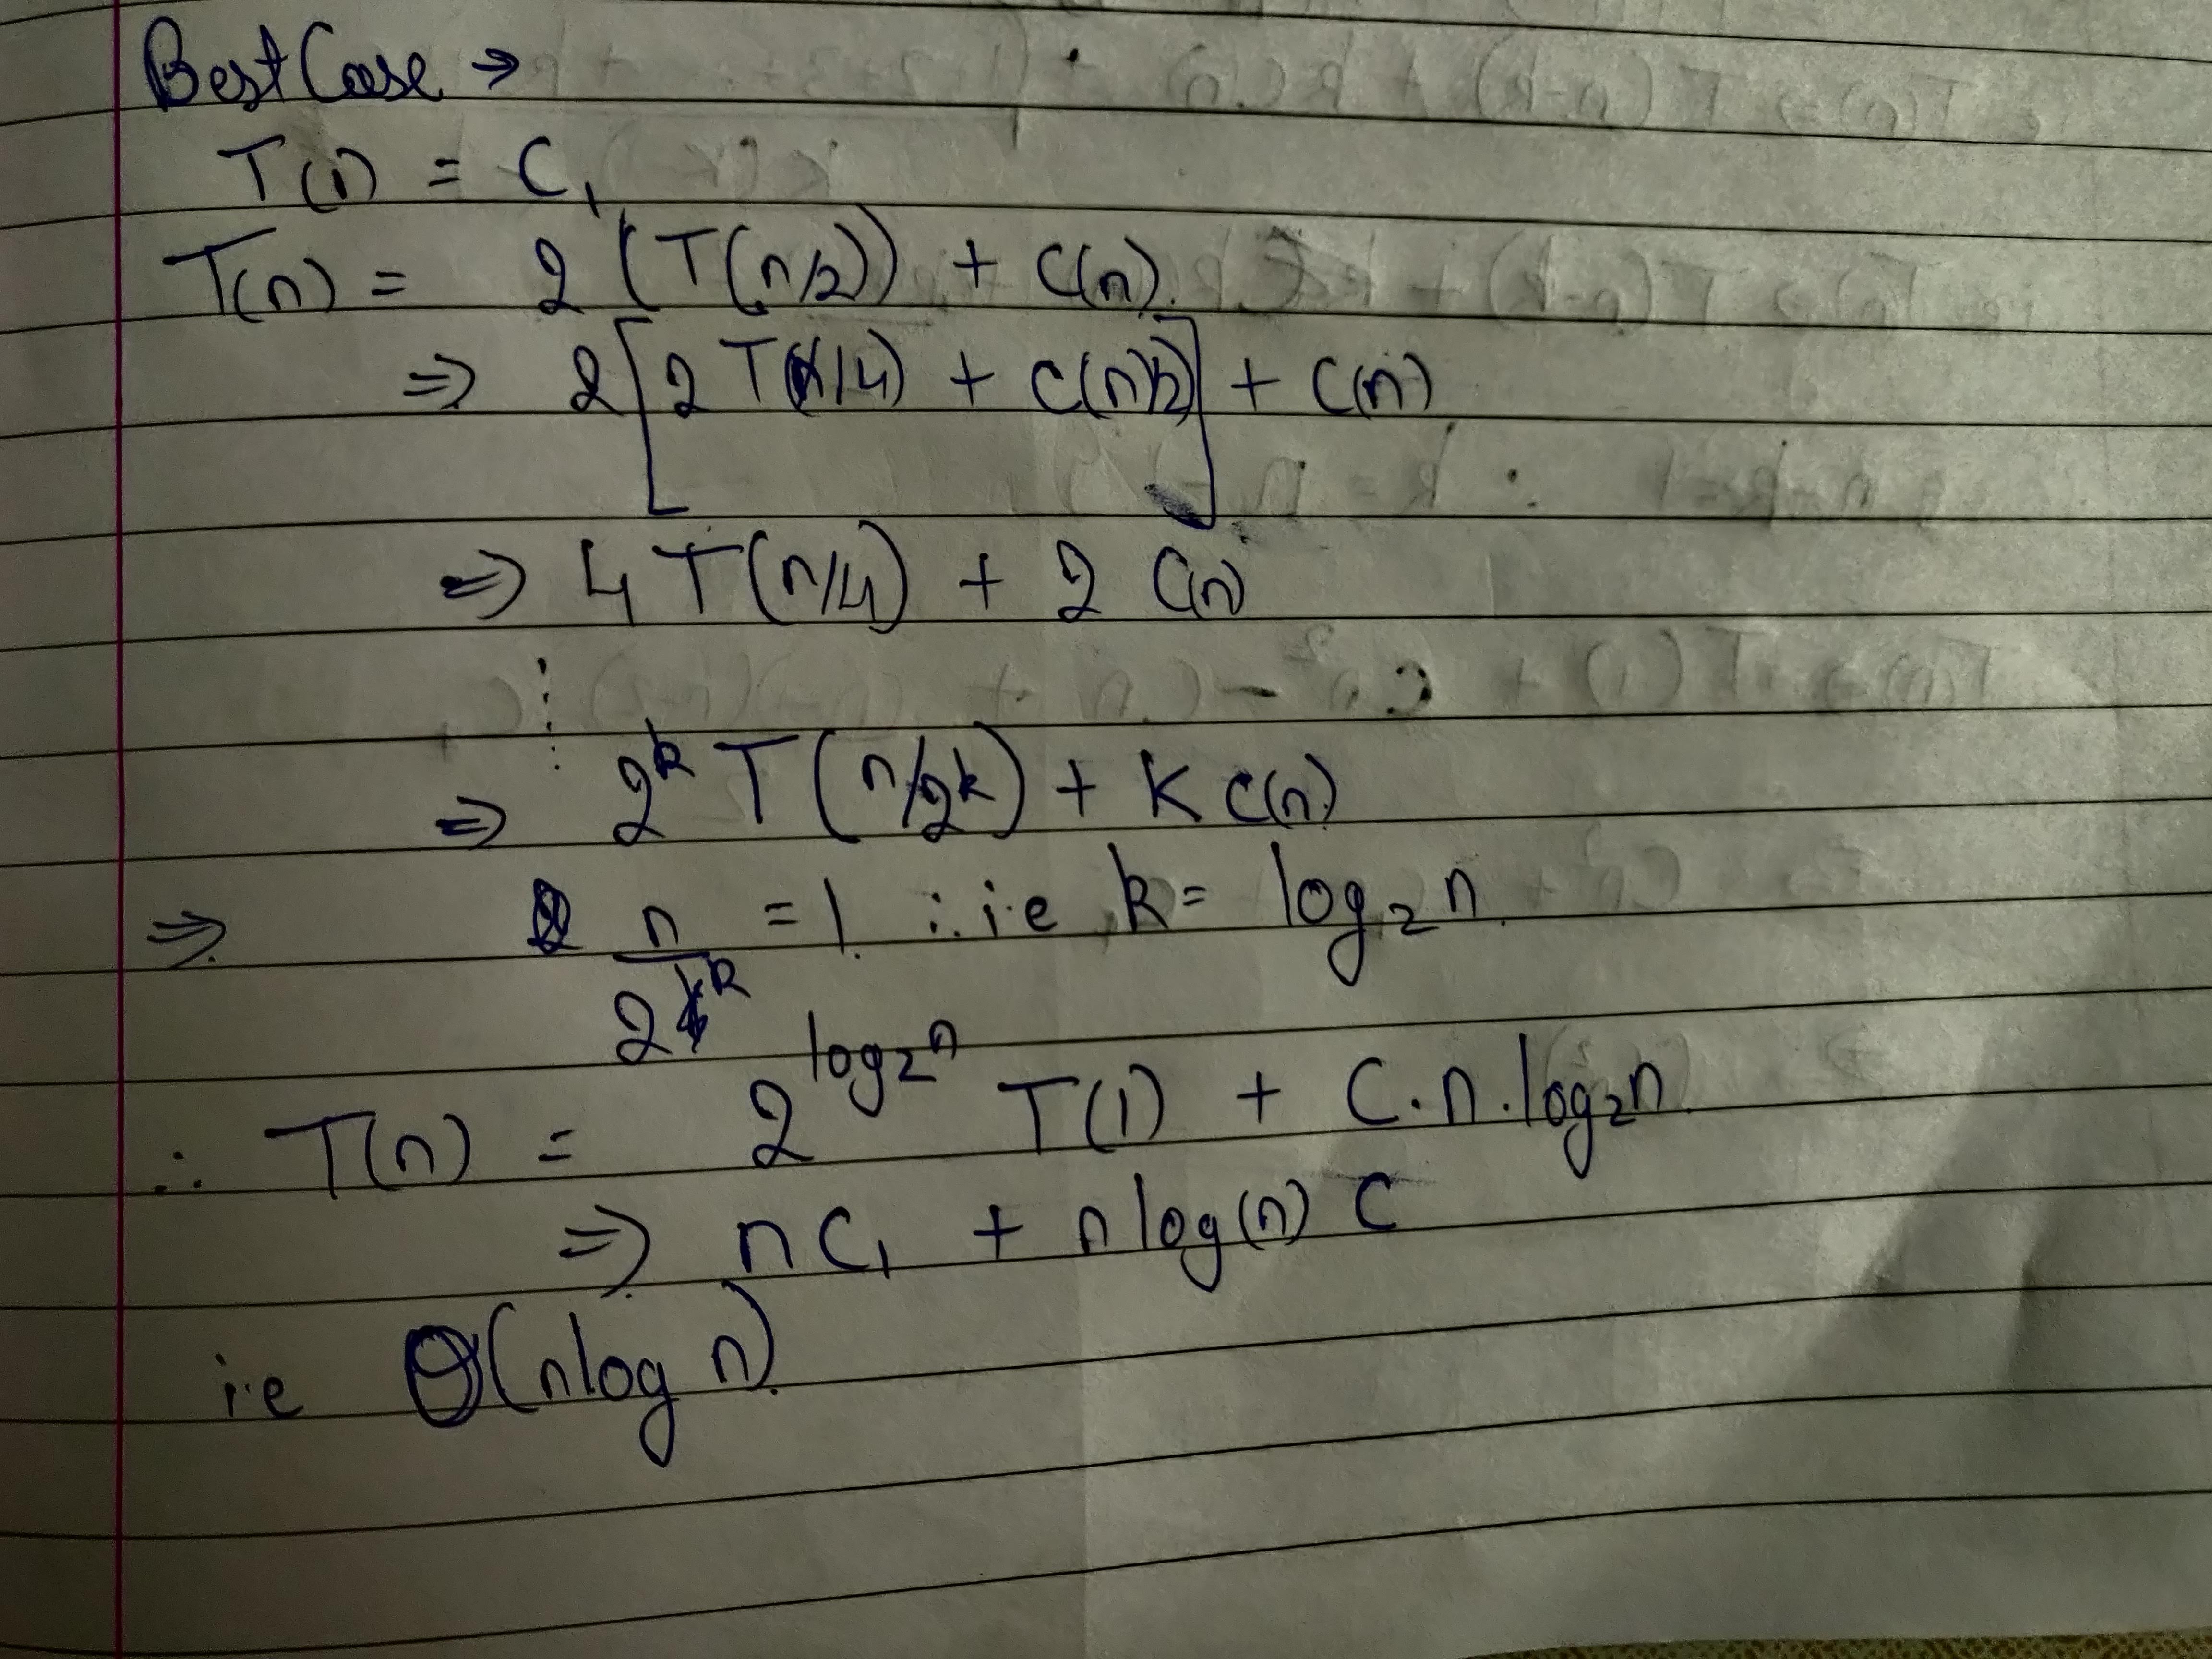 Best Case →
T(1) = C₁
T(n) = 2 (T(n/2)) + C(n).
⇒ 2[2 T(n/4) + C(n/2)] + C(n)
⇒ 4 T(n/4) + 2 C(n)
⋮
⇒ 2ᵏ T(n/2ᵏ) + K C(n)
⇒ n/2ᵏ = 1. ∴ i.e k = log₂ n.
∴ T(n) = 2^(log₂ n) T(1) + C.n.log₂n.
⇒ nC₁ + n log(n) C
i.e Θ(n log n).